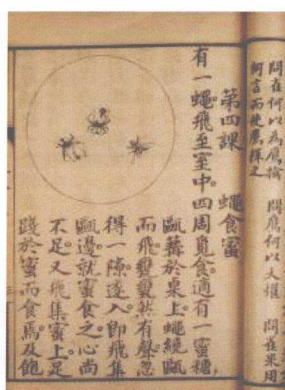 問雀何以為鷹擒 問鷹何以大懼 問雀果用
何言而使鷹釋之
第四課 蠅食蜜
有一蠅飛至室中。四周覓食。適有一蜜糖
甌 於桌上。蠅繞甌
而飛。 然有聲。忽
得一隙。遂入。即飛集
甌邊。就蜜食之。心尚
不足。又飛集蜜上。足
踐於蜜而食焉。及飽